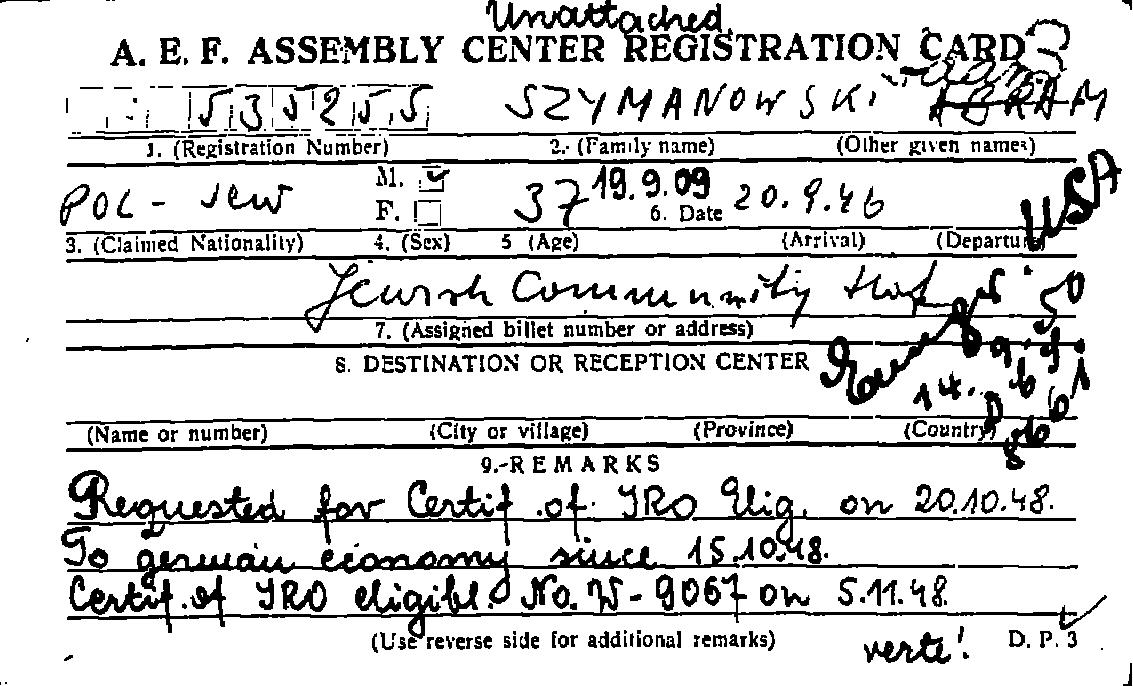 Unattached
A. E. F. ASSEMBLY CENTER REGISTRATION CARD
535255 SZYMANOWSKI ABRAM
1. (Registration Number) 2. (Family name) (Other given names)
POL - Jew M. F. 37 19.9.09 6. Date 20.9.46 USA
3. (Claimed Nationality) 4. (Sex) 5 (Age) (Arrival) (Departure)
Jewish Community Hof
7. (Assigned billet number or address)
8. DESTINATION OR RECEPTION CENTER
(Name or number) (City or village) (Province) (Country)
9.-REMARKS
Requested for Certif. of. IRO Elig. on 20.10.48.
To german economy since 15.10.48.
Certif. of IRO eligibl. No. W-9067 on 5.11.48.
(Use reverse side for additional remarks) verte! D. P. 3